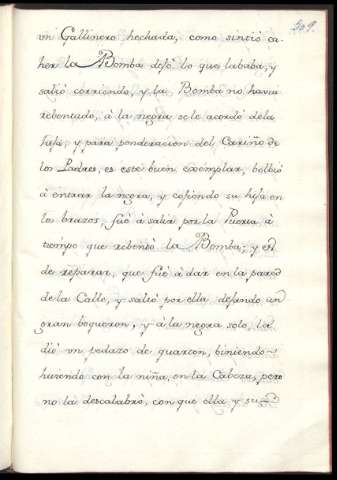 309.
vn Gallinero hechada, como sintió ca-
her la Bomba dejó lo que lababa, y
salió corriendo, y la Bomba no havia
rebentado, à la negra se le acordó dela
hija, y para ponderacion del Cariño de
los Padres, es este buen exemplar, bolbió
à entrar la negra, y cojiendo su hija en
los brazos, fué à salir por la Puerta à
tiempo que rebentó la Bomba; y es
de reparar, que fué à dar en la pared
de la Calle, y salió por ella dejando un
gran boqueron, y à la negra solo, la
dió vn pedazo de quarton, biniendo
huiendo con la niña, en la Cabeza, pero
no la descalabró, con que ella y su